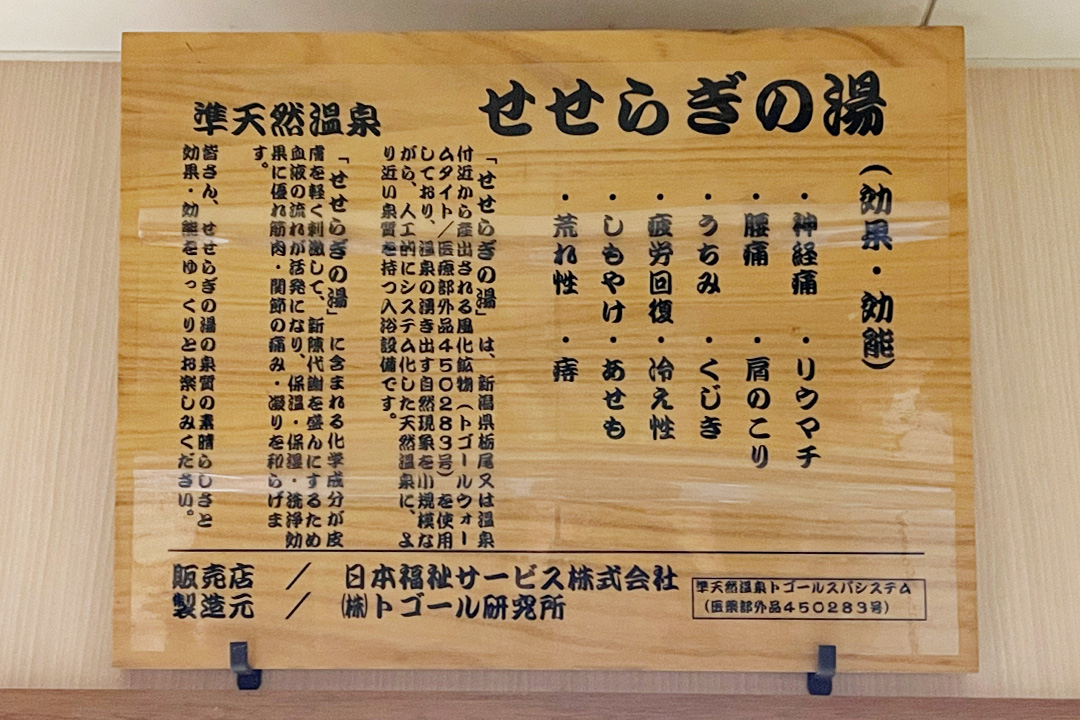 せせらぎの湯
（効果・効能）
・神経痛 ・リウマチ
・腰痛 ・肩のこり
・うちみ ・くじき
・疲労回復 ・冷え性
・しもやけ ・あせも
・荒れ性 ・痔
準天然温泉
「せせらぎの湯」は、新潟県栃尾又は温泉
付近から産出される風化鉱物（トゴールウォー
ムタイト／医療部外品450283号）を使用
しており、温泉の湧き出す自然現象を小規模な
がら、人工的にシステム化した天然温泉に、よ
り近い泉質を持つ入浴設備です。
「せせらぎの湯」に含まれる化学成分が皮
膚を軽く刺激して、新陳代謝を盛んにするため
血液の流れが活発になり、保温・保湿・洗浄効
果に優れ筋肉・関節の痛み・凝りを和らげま
す。
皆さん、せせらぎの湯の泉質の素晴らしさと
効果・効能をゆっくりとお楽しみください。
販売店 ／ 日本福祉サービス株式会社
製造元 ／ ㈱トゴール研究所
準天然温泉トゴールスパシステム
（医薬部外品450283号）